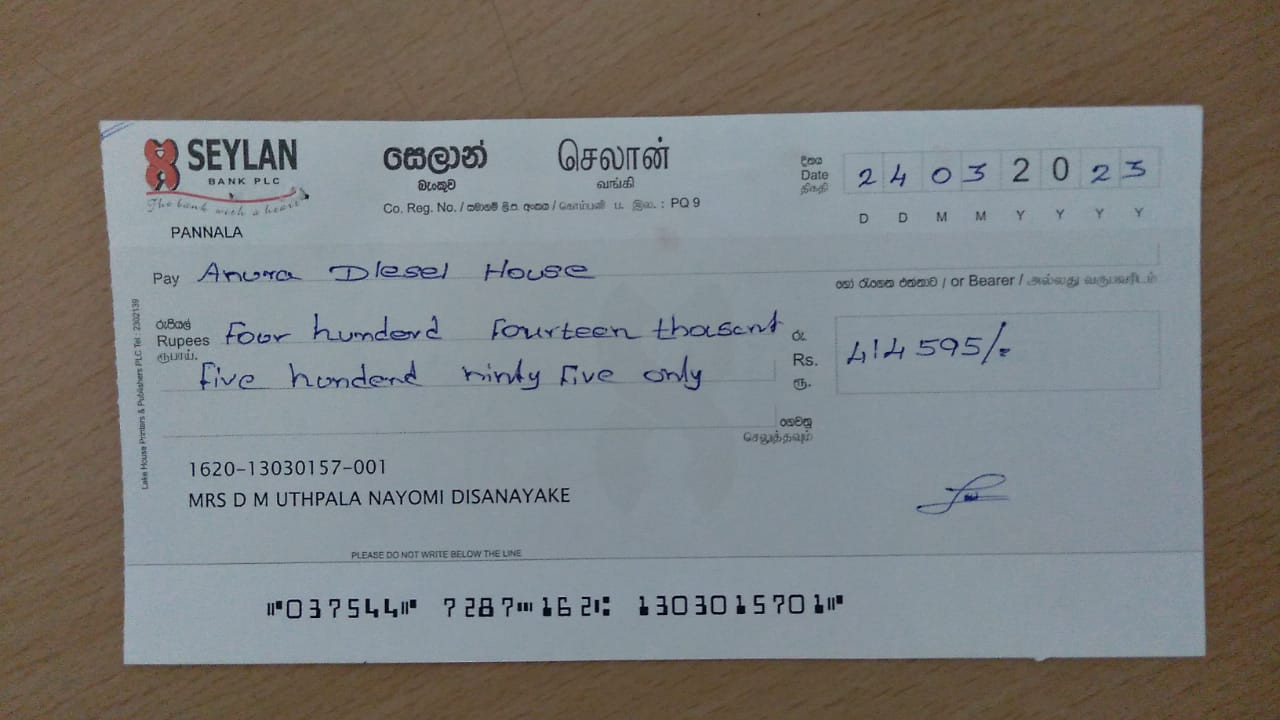 SEYLAN
BANK PLC
The bank with a heart
PANNALA
සෙලාන්
බැංකුව
செலான்
வங்கி
Co. Reg. No. / සමාගම් ලි.ප. අංකය / கொம்பனி ப. இல. : PQ 9
දිනය
Date
திகதி
2 4 0 3 2 0 2 3
D D M M Y Y Y Y
Pay Anura Diesel House
හෝ රැගෙන එන්නාට / or Bearer / அல்லது வருபவரிடம்
රුපියල්
Rupees
ரூபாய்.
Four hunderd Fourteen thosant
five hondend ninty five only
රු.
Rs.
ரூ.
414 595/=
ගෙවනු
செலுத்தவும்
1620-13030157-001
MRS D M UTHPALA NAYOMI DISANAYAKE
PLEASE DO NOT WRITE BELOW THE LINE
⑈037544⑈ 7287⑉162⑆ 1303015701⑈
Lake House Printers & Publishers PLC Tel : 2302139